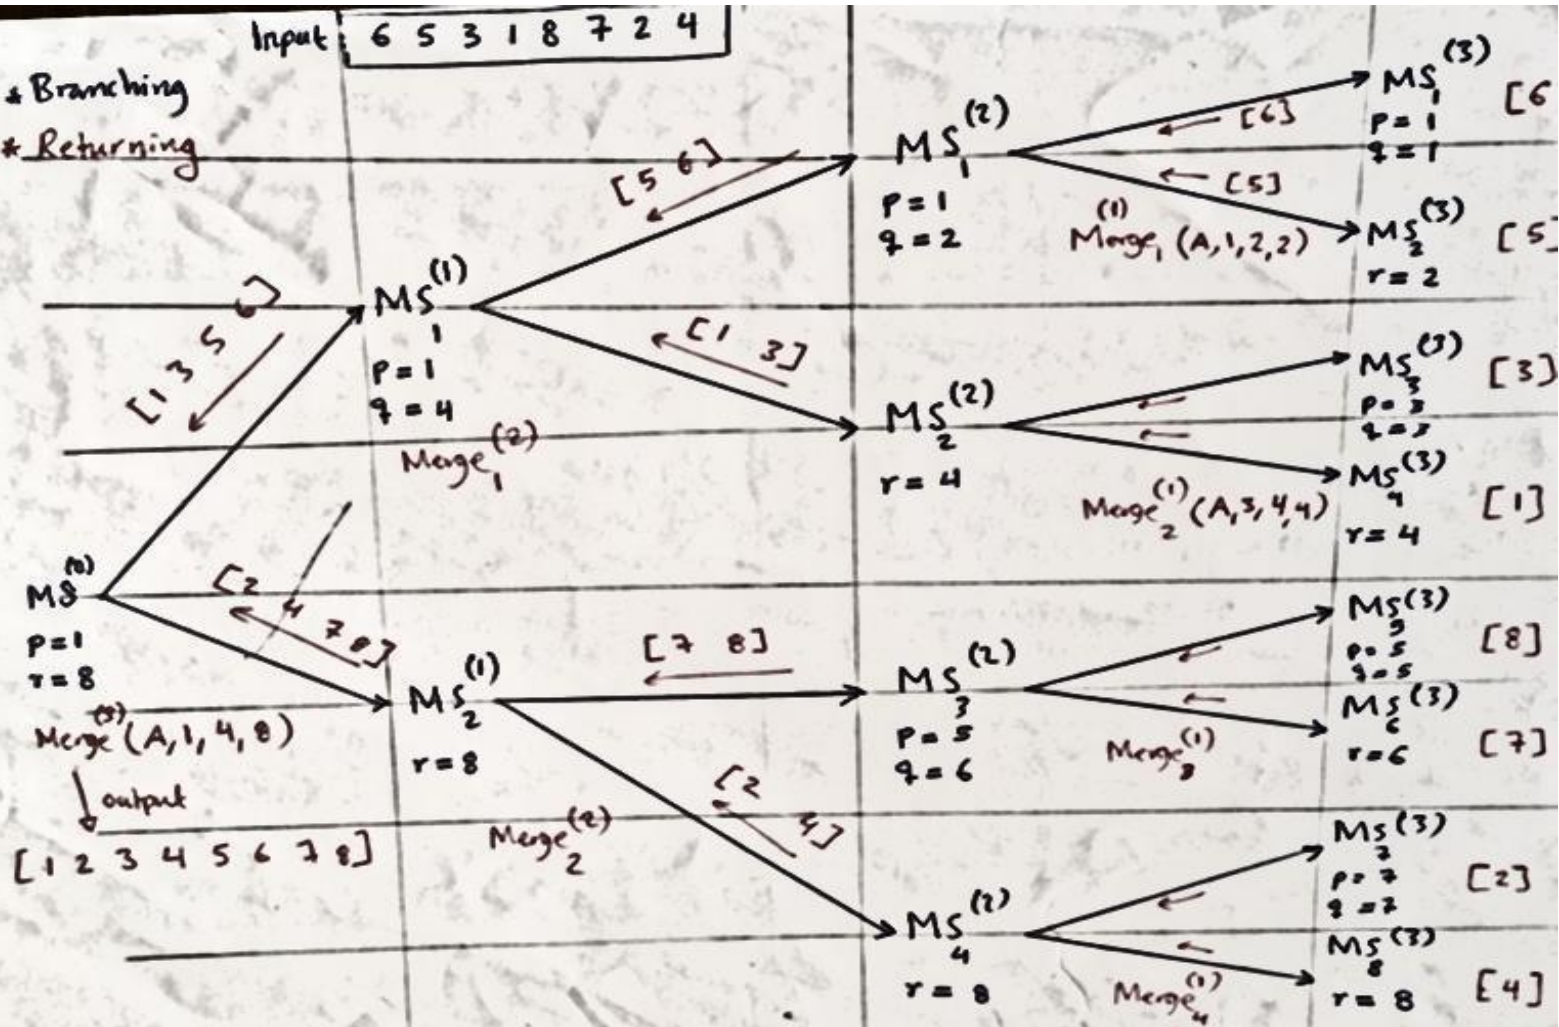 Input 6 5 3 1 8 7 2 4
* Branching
* Returning
MS(0)
p=1
r=8
Merge(3)(A,1,4,8)
output
[1 2 3 4 5 6 7 8]
[1 3 5 6]
[2 4 7 8]
MS1(1)
p=1
q=4
Merge1(2)
MS2(1)
r=8
Merge2(2)
[5 6]
[1 3]
[7 8]
[2 4]
MS1(2)
p=1
q=2
Merge1(1)(A,1,2,2)
MS2(2)
r=4
Merge2(1)(A,3,4,4)
MS3(2)
p=5
q=6
Merge3(1)
MS4(2)
r=8
Merge4(1)
[6]
[5]
MS1(3) [6
p=1
q=1
MS2(3) [5]
r=2
MS3(3) [3]
p=3
q=3
MS4(3) [1]
r=4
MS5(3) [8]
p=5
q=5
MS6(3) [7]
r=6
MS7(3) [2]
p=7
q=7
MS8(3) [4]
r=8